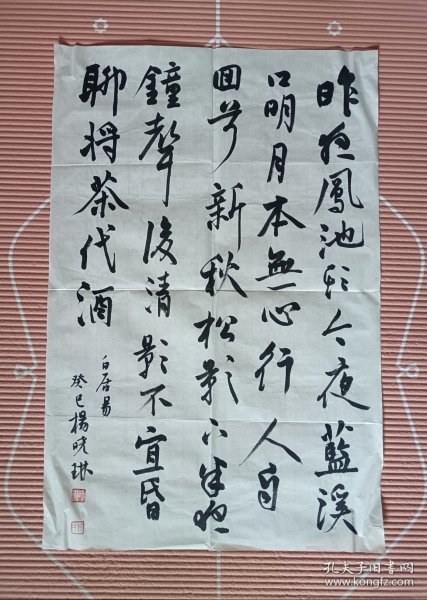 昨夜鳳池頭今夜藍溪
口明月本無心行人自
回首新秋松影下半夜
鐘聲後清影不宜昏
聊将茶代酒
白居易
癸巳楊曉琳
孔夫子旧书网
www.kongfz.com